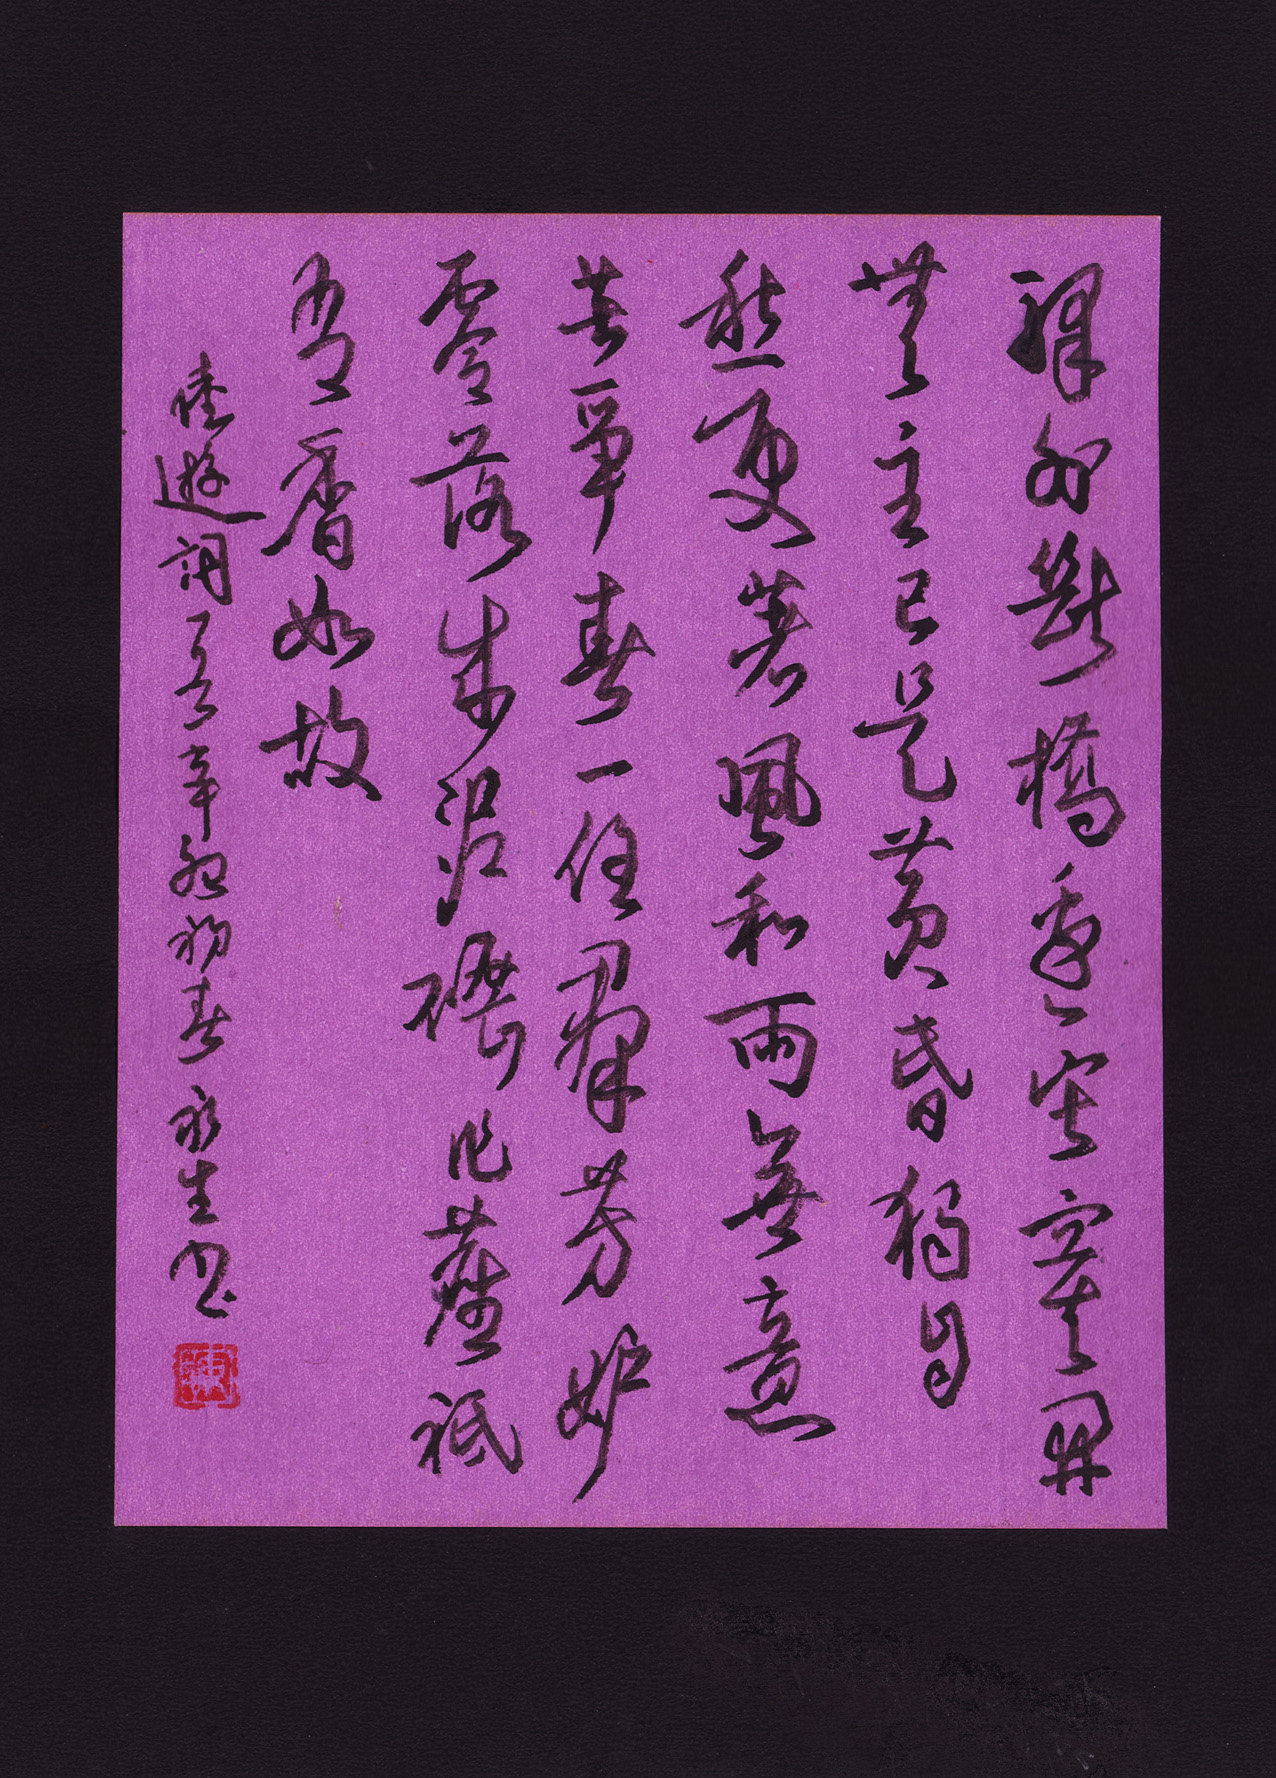 驛外斷橋邊寂寞開
無主已是黃昏獨自
愁更著風和雨無意
苦爭春一任群芳妒
零落成泥碾作塵祇
有香如故
陸遊詞 初春 永生書